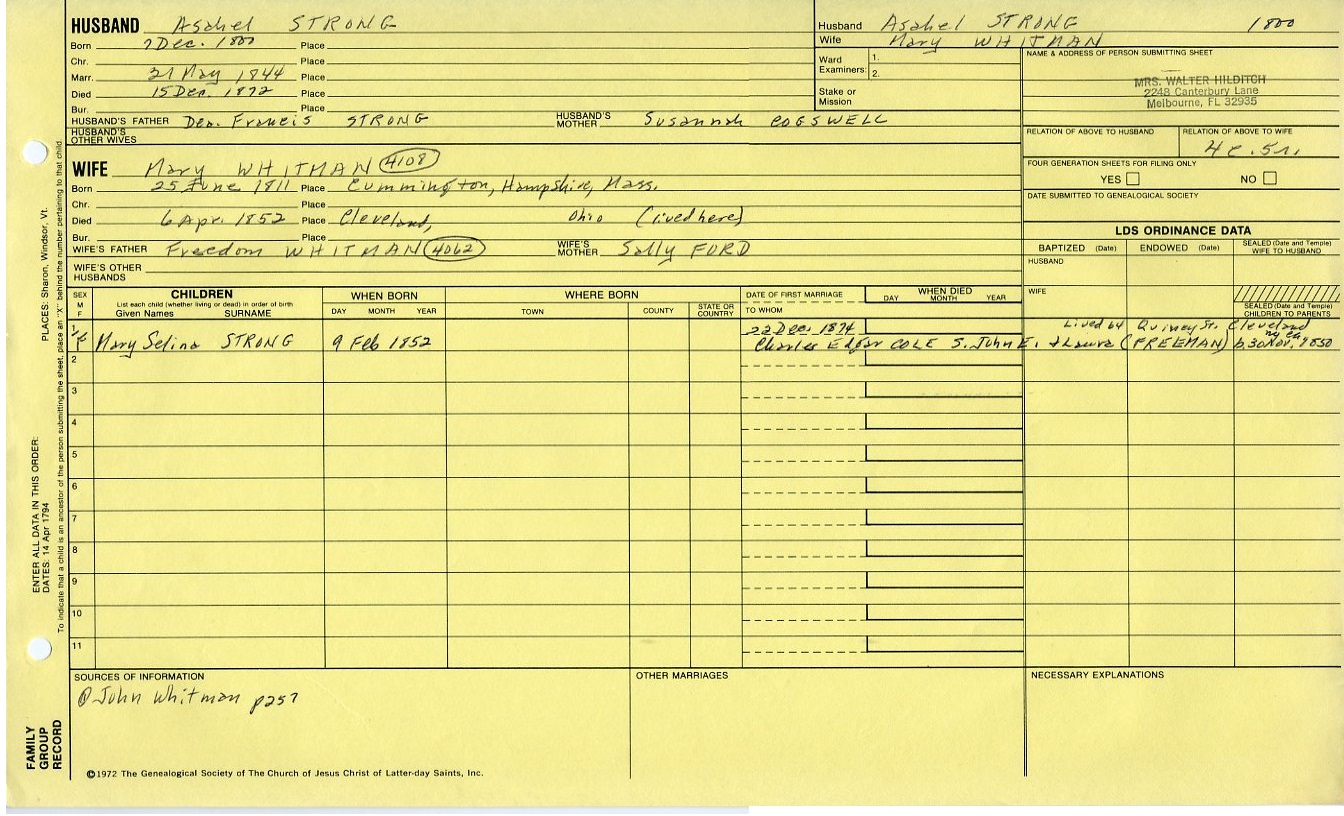 HUSBAND Asahel STRONG
Born 7 Dec. 1800 Place
Chr. Place
Marr. 21 May 1844 Place
Died 15 Dec. 1872 Place
Bur. Place
HUSBAND'S FATHER Dea. Francis STRONG HUSBAND'S MOTHER Susannah COGSWELL
HUSBAND'S OTHER WIVES
Husband Asahel STRONG 1800
Wife Mary WHITMAN
Ward Examiners: 1.
2.
Stake or Mission
NAME & ADDRESS OF PERSON SUBMITTING SHEET
MRS. WALTER HILDITCH
2248 Canterbury Lane
Melbourne, FL 32935
RELATION OF ABOVE TO HUSBAND RELATION OF ABOVE TO WIFE
4c. 5r.
FOUR GENERATION SHEETS FOR FILING ONLY
YES NO
DATE SUBMITTED TO GENEALOGICAL SOCIETY
WIFE Mary WHITMAN 4108
Born 25 June 1811 Place Cummington, Hampshire, Mass.
Chr. Place
Died 6 Apr. 1852 Place Cleveland, Ohio (lived here)
Bur. Place
WIFE'S FATHER Freedom WHITMAN 4062 WIFE'S MOTHER Sally FORD
WIFE'S OTHER HUSBANDS
LDS ORDINANCE DATA
BAPTIZED (Date) ENDOWED (Date) SEALED (Date and Temple) WIFE TO HUSBAND
HUSBAND
WIFE
SEALED (Date and Temple) CHILDREN TO PARENTS
SEX M F
CHILDREN
List each child (whether living or dead) in order of birth
Given Names SURNAME
WHEN BORN
DAY MONTH YEAR
WHERE BORN
TOWN COUNTY STATE OR COUNTRY
DATE OF FIRST MARRIAGE
TO WHOM
WHEN DIED
DAY MONTH YEAR
1 F Mary Selina STRONG 9 Feb 1852 22 Dec. 1874 Lived 64 Quincy St. Cleveland
Charles Edgar COLE S. John E. & Laura (FREEMAN) b. 30 Nov. 1850
2
3
4
5
6
7
8
9
10
11
SOURCES OF INFORMATION
John Whitman p257
OTHER MARRIAGES
NECESSARY EXPLANATIONS
©1972 The Genealogical Society of The Church of Jesus Christ of Latter-day Saints, Inc.
FAMILY GROUP RECORD
ENTER ALL DATA IN THIS ORDER:
DATES: 14 Apr 1794
PLACES: Sharon, Windsor, Vt.
To indicate that a child is an ancestor of the person submitting the sheet, place an "X" behind the number pertaining to that child.